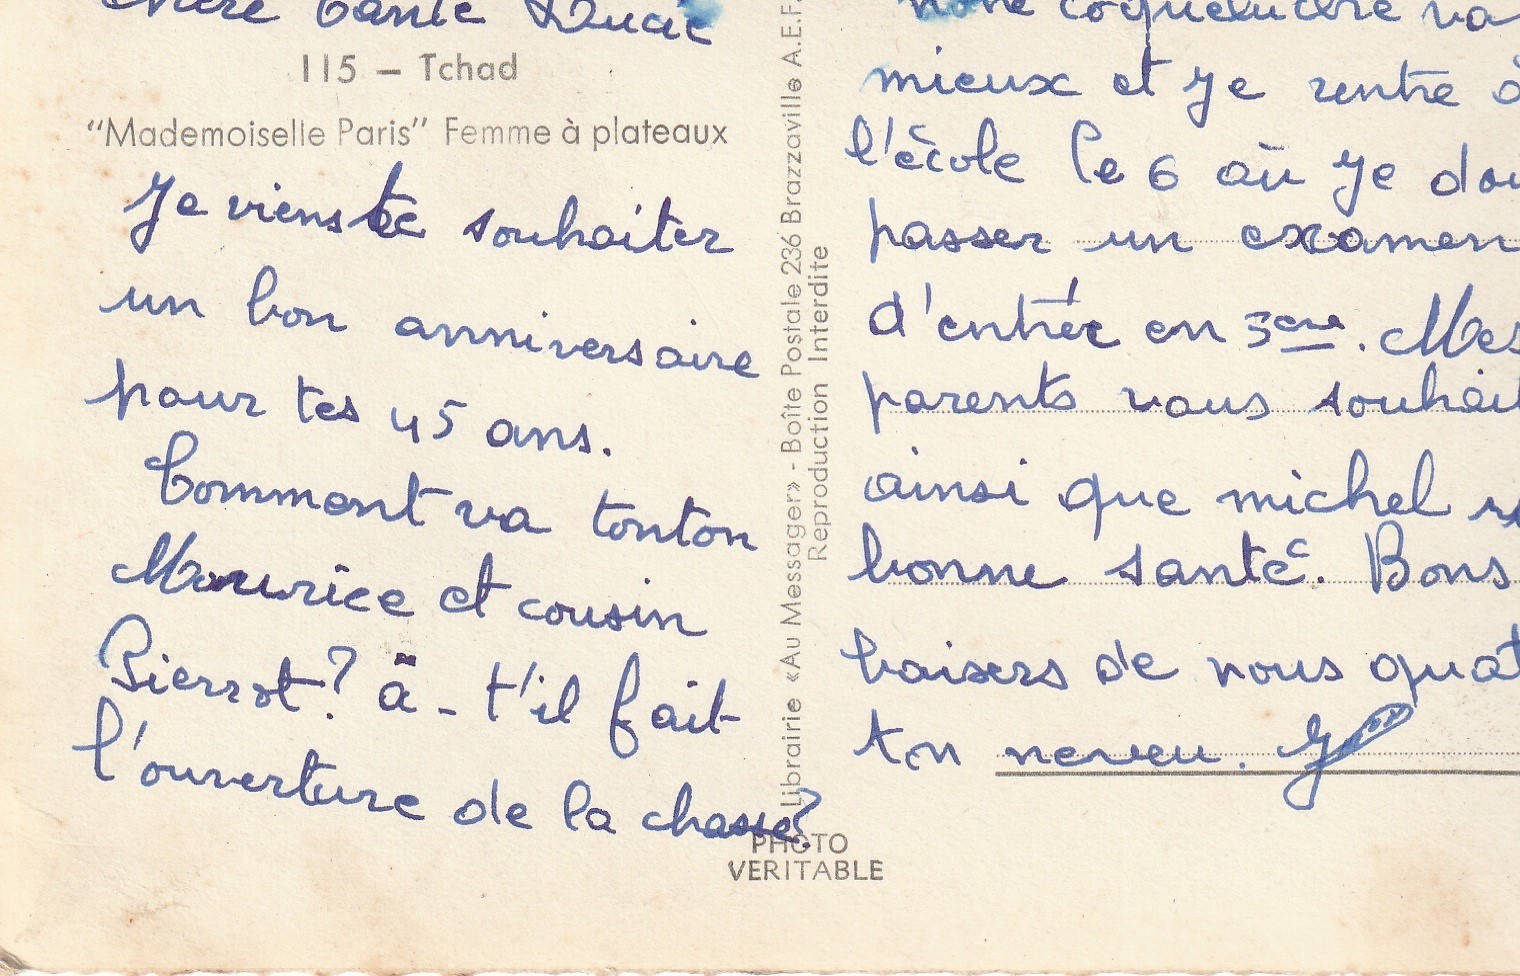 chère tante Lucie
115 – Tchad
"Mademoiselle Paris" Femme à plateaux
Je viens te souhaiter
un bon anniversaire
pour tes 45 ans.
Comment va tonton
Maurice et cousin
Pierrot? a - t'il fait
l'ouverture de la chasse?
Librairie «Au Messager» - Boîte Postale 236 Brazzaville A.E.F.
Reproduction Interdite
PHOTO
VERITABLE
coqueluche va
mieux et je rentre à
l'école le 6 où je doi
passer un examen
d'entrée en 3eme. Mes
parents vous souhait
ainsi que michel
bonne santé. Bons
baisers de nous quat
ton neveu.